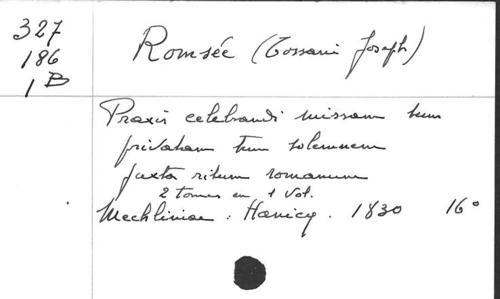 327
186
1 B
Romsée (Tossani Joseph)
Praxis celebrandi missam tum
privatam tum solemnem
juxta ritum romanum
2 tomes en 1 vol.
Mechliniae : Hanicq . 1830 16°